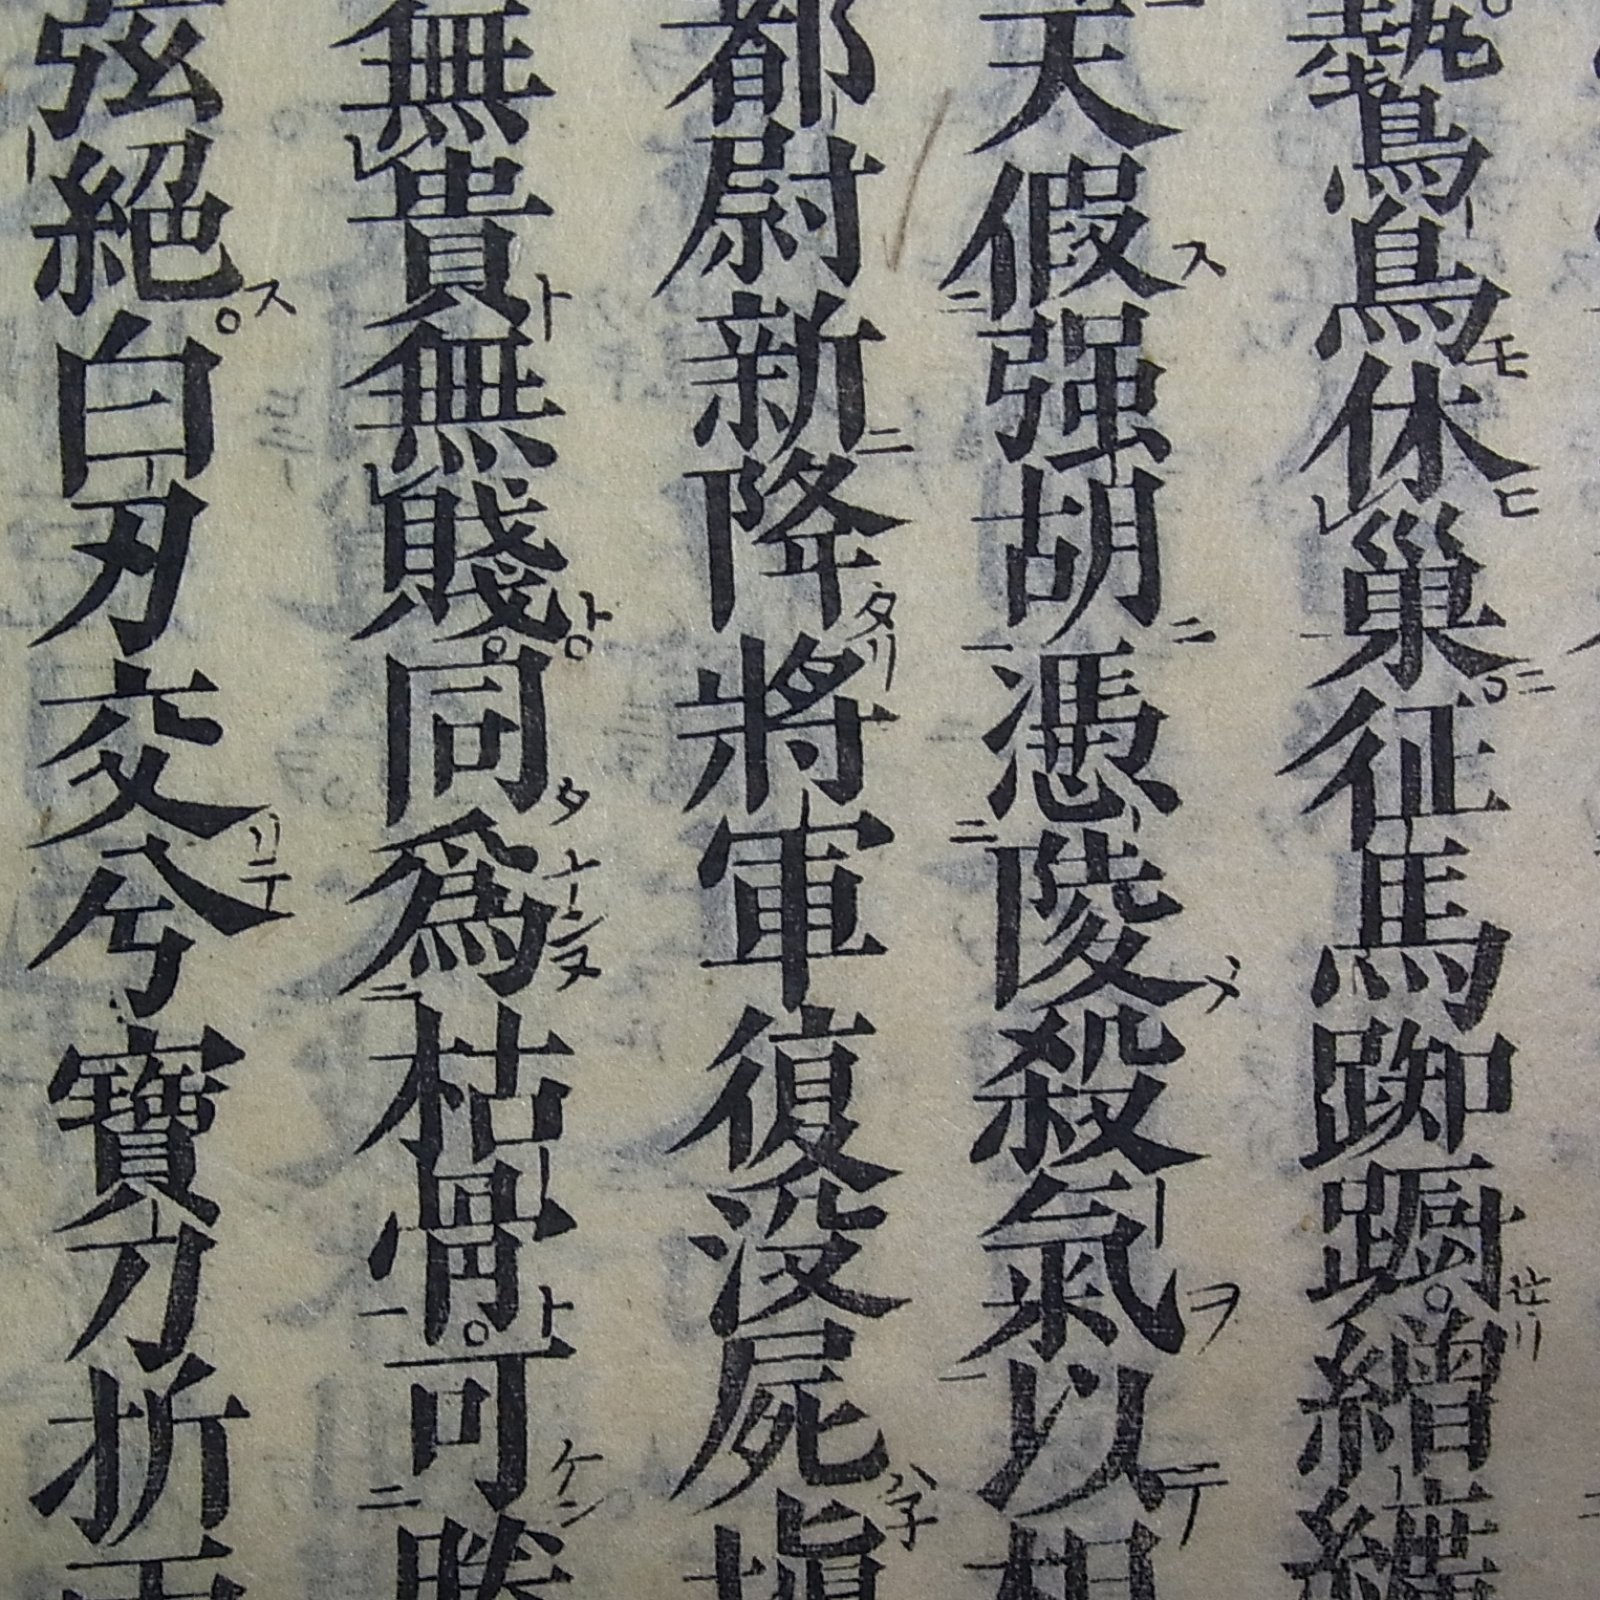 鷙鳥休巢征馬踟躕繒纊
天假强胡憑陵殺氣以相
都尉新降將軍復没屍塡
無貴無賤同爲枯骨可勝
弦絕白刃交兮寶刀折兩